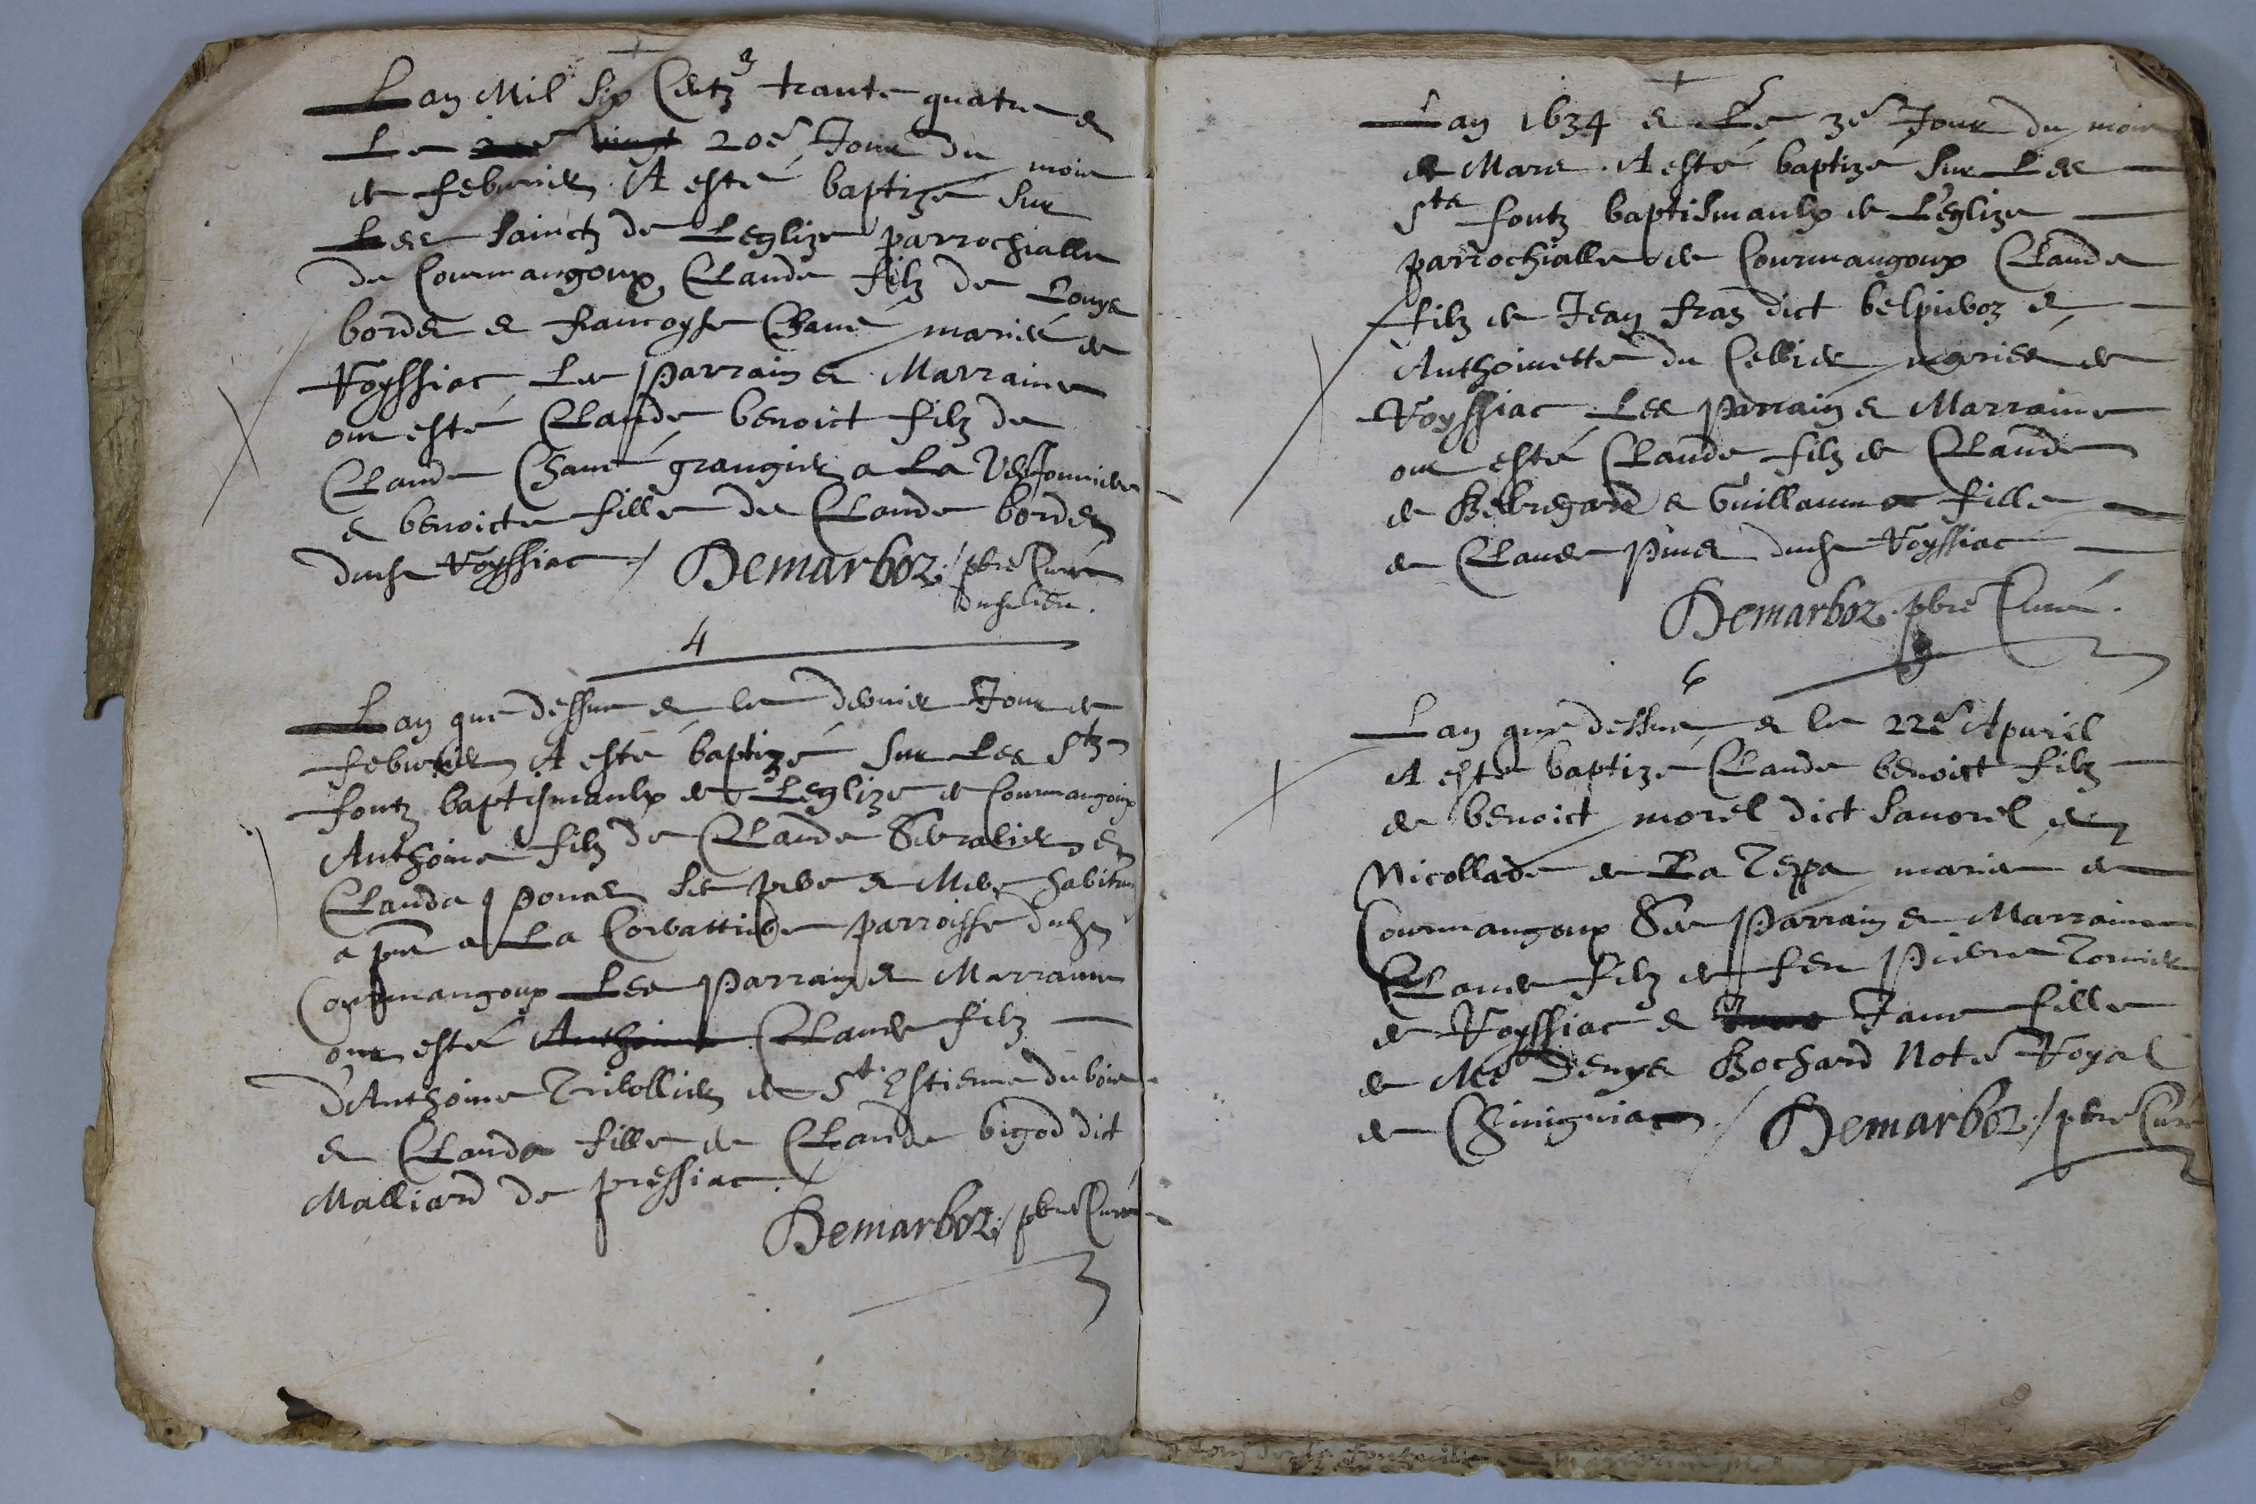 3
Lan Mil Six Centz trante quatre &
Le 20e Jour du mois
de febvrier A esté baptizé Sur
Les Sainctz de Leglize parrochialle
de Courmangoux Claude filz de Louys
border & francoyse Chané mariés de
Royssiac Le parrain & Marraine
ont esté Claude benoict filz de
Claude Chané grangier a La Verjonniere
& benoicte fille de Claude border
dudt Royssiac / Demarboz / pbre Curé
dudt lieu.
4
Lan que dessus & le dernier Jour de
febvrier A esté baptizé Sur Les Stz
fontz baptismaulx de Leglize de Courmangoux
Anthoine filz de Claude & en
Clauda ponar Ses pere & Mere habitans
a pnt a La Corvattiere parroisse dudt
Cormangoux Les parrain & Marraine
ont esté Anthoine Claude filz
D'Anthoine Trivollier de St Estienne du bois
& Clauda fille de Claude bigod dict
Malliard de pressiac /
Demarboz / pbre Curé
5
Lan 1634 & Le 3e Jour du mois
de Mars A esté baptizé Sur Les
Sts fontz baptismaulx de Leglize
parrochialle de Courmangoux Claude
filz de Jean fraz dict belpievoz &
Anthoinette du Cellier mariés de
Royssiac Les parrain & Marraine
ont esté Claude filz de Claude
de Belregard & Guillauma fille
de Claude dudt Royssiac
Demarboz pbre Curé.
6
Lan que dessus & le 22e Apvril
A esté baptizé Claude benoict filz
de benoict morel dict Savorel &
Nicollade de La Teppa mariés de
Courmangoux Ses parrain & Marraine
Claude filz de feu pierre Tornier
de Royssiac & Jane fille
de Me Denys Bochard Note Royal
de Chiniguia / Demarboz / pbre Curé